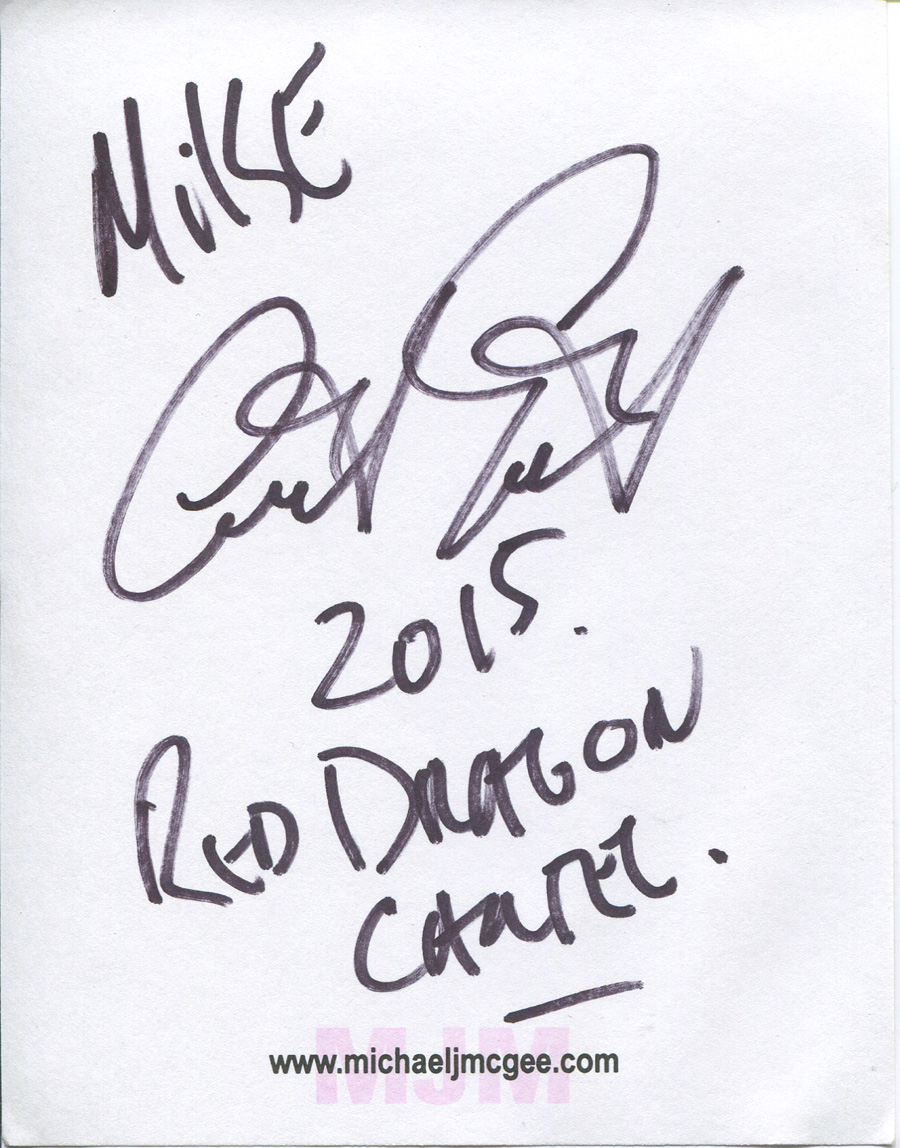 MiKE
2015.
RED DRAGON
CARTEL.
www.michaeljmcgee.com
MJM